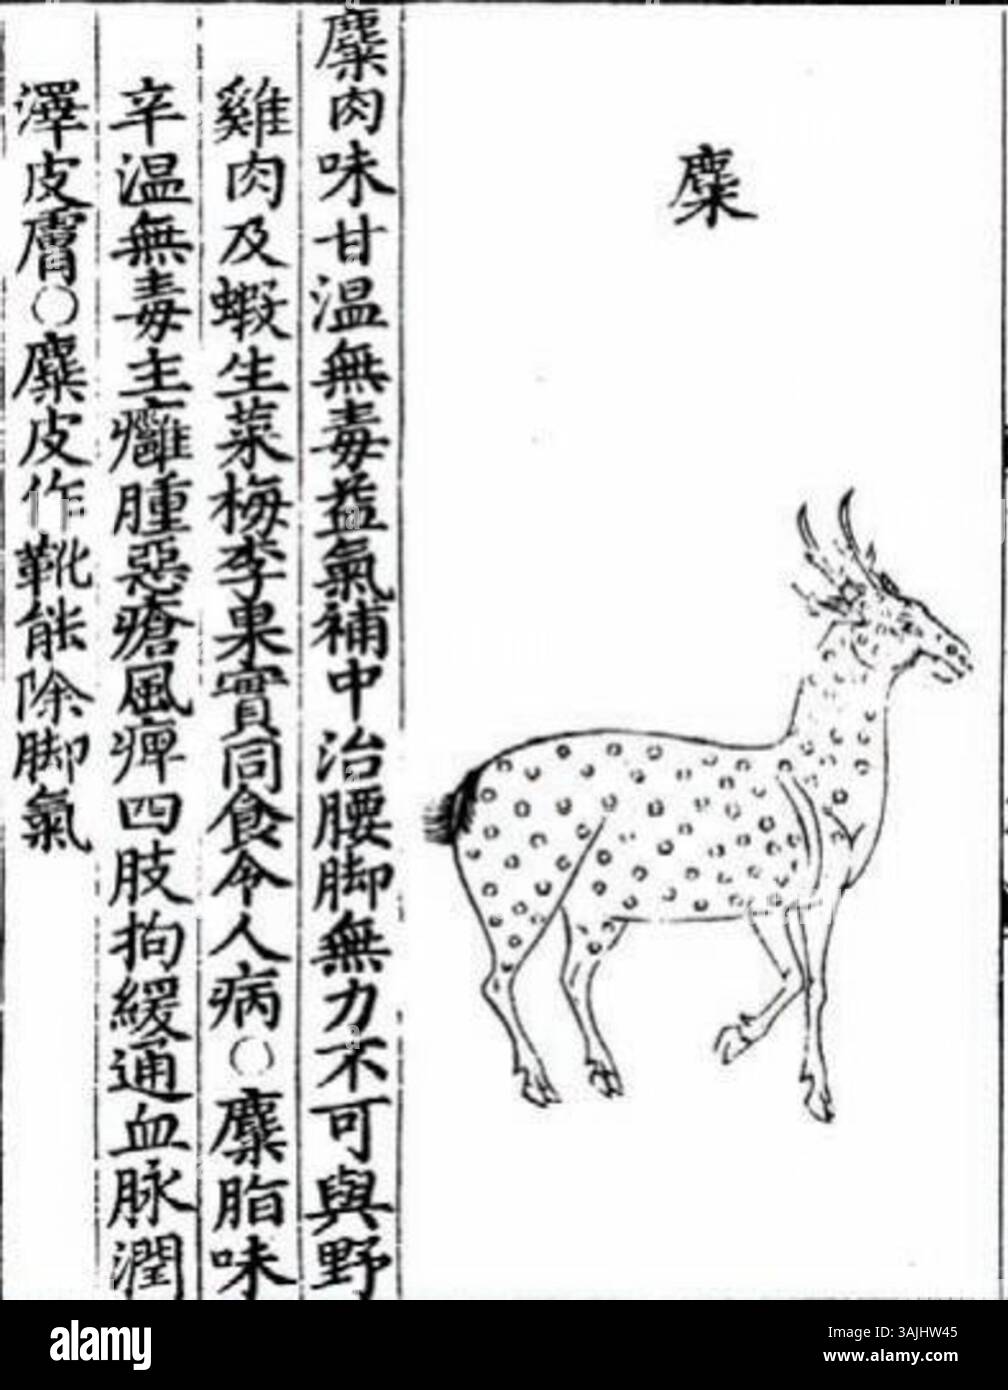 麋
麋肉味甘温無毒益氣補中治腰脚無力不可與野
雞肉及蝦生菜梅李果實同食令人病○麋脂味
辛温無毒主癰腫惡瘡風痺四肢拘緩通血脉潤
澤皮膚○麋皮作靴能除脚氣
alamy
Image ID: 3AJHW45
www.alamy.com